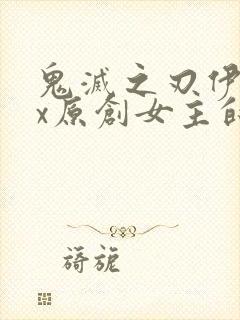 鬼滅之刃伊
x原創女主的
旖旎